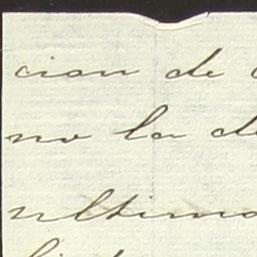 cion de
no la de
ultimo